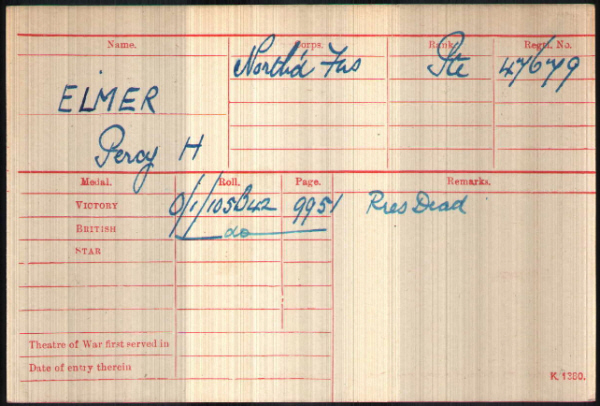 Name. Corps. Rank. Regtl. No.
ELMER North'd Fus Pte 47679
Percy H
Medal. Roll. Page. Remarks.
VICTORY O/1/105B42 9951 Pres Dead
BRITISH do
STAR
Theatre of War first served in
Date of entry therein
K. 1380.